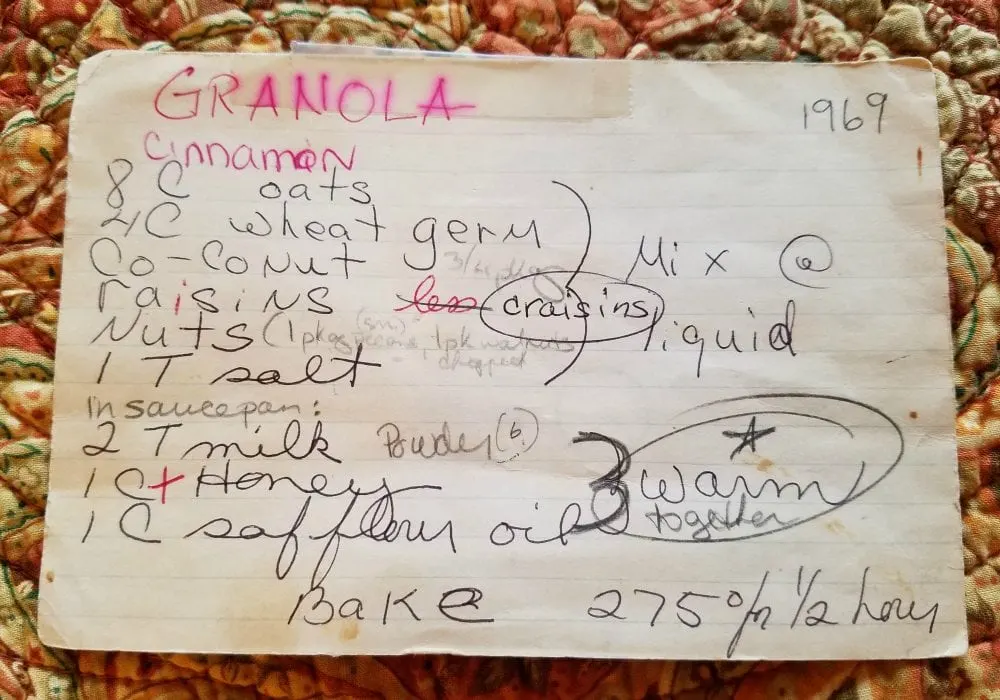 GRANOLA
1969
Cinnamon
8 C oats
4C wheat germ
Co-Conut
raisins less craisins
Nuts (1 pkg pecans, 1pk walnuts
(sm)
chopped
1 T salt
Mix @
liquid
In saucepan:
2 T milk Powder (6)
1 C + Honey
1 C safflour oil
★ warm
together
Bake 275° / 1/2 hour